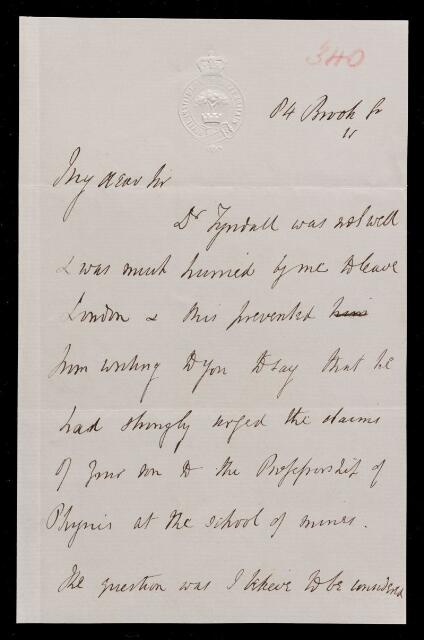 340
84 Brook St
My dear Sir
Dr Tyndall was not well
& was much hurried by me to leave
London & this prevented him
him writing to you to say that he
had strongly urged the claims
of your son to the Professorship of
Physics at the school of mines.
The question was I believe to be considered